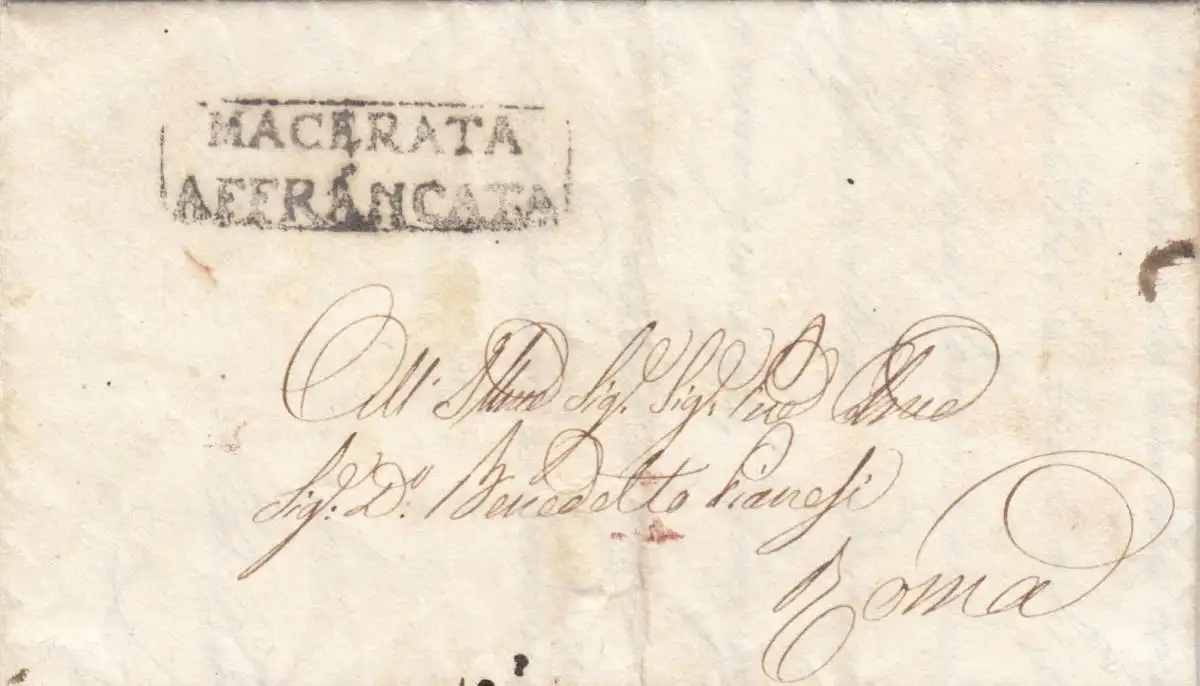 MACERATA
AFFRANCATA
All' Illmo Sigr. Sigr.
Sigr. Dn. Benedetto Pianesi
Roma